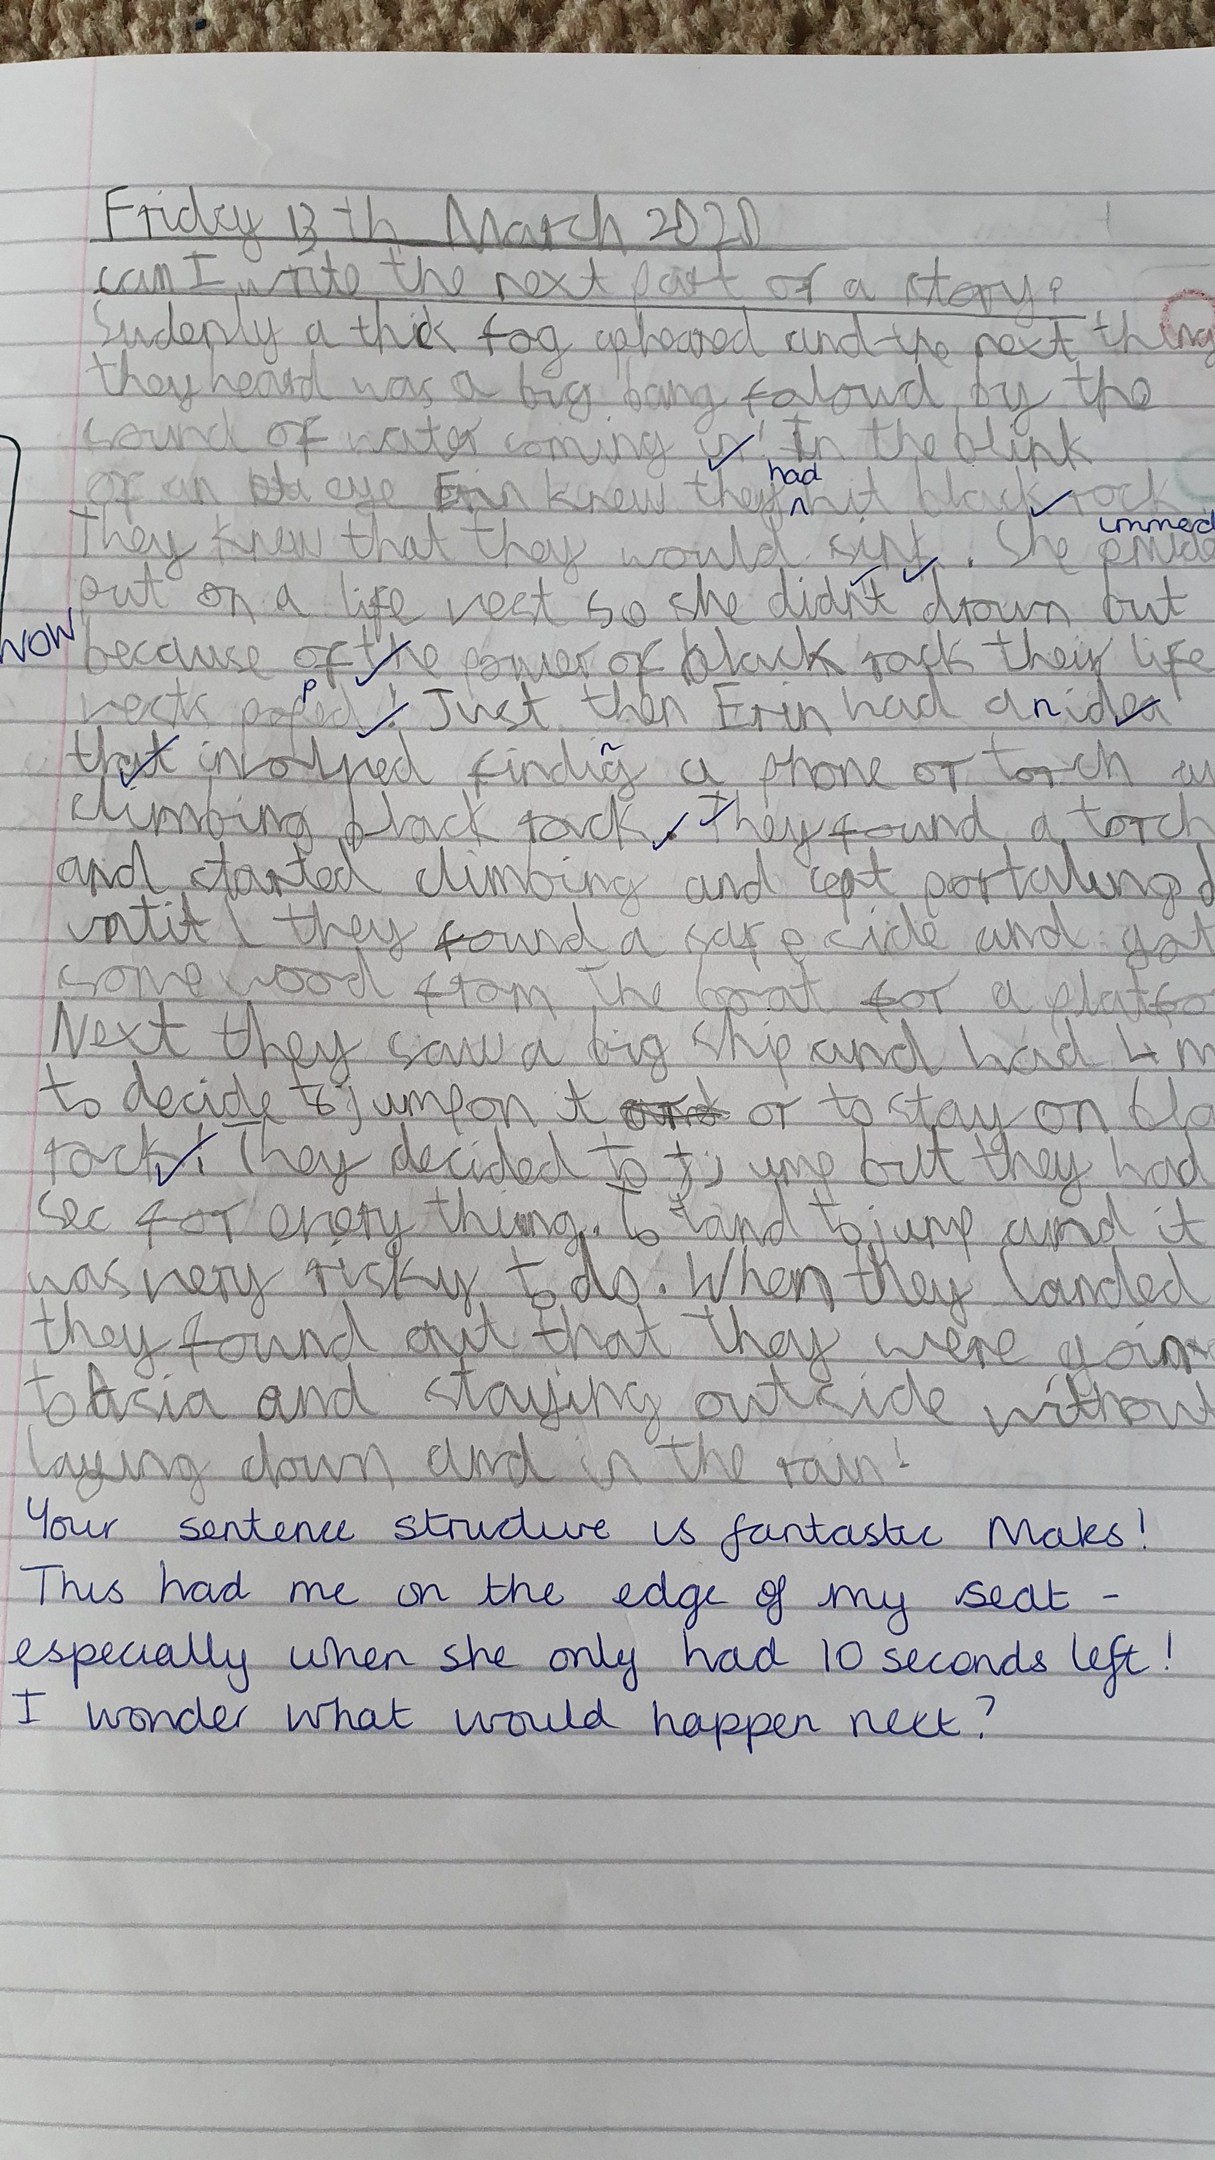 Friday 13th March 2020
can I write the next part of a story?
Sudenly a thick fog apheared and the next thing
they heard was a big bang faloud by the
sound of water coming in! In the blink
had
of an eye Erin knew they hit black rock
immedi
They knew that they would sink. She
put on a life vest so she didn't drown but
WOW
because of the power of black rock their life
p
vests poped! Just then Erin had an idea
that involved findig a phone or torch
climbing black rock. They found a torch
and started climbing and cept
until they found a safe side and got
some wood from the boat for a platfo
Next they saw a big ship and had 4 m
to decide to jump on it or to stay on bla
rock! They decided to jump but they had
sec for every thing. To land to jump and it
was very risky to do. When they landed
they found out that they were goin
to Asia and staying outside without
laying down and in the rain!
Your sentence structure is fantastic Maks!
This had me on the edge of my seat -
especially when she only had 10 seconds left!
I wonder what would happen next?